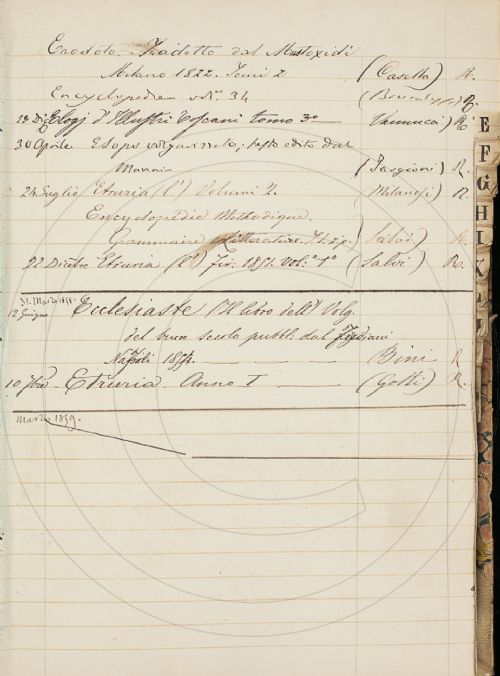 Erodoto. Tradotto dal Mustoxidi
Milano 1822. Tomi 2 (Casella) R.
Encyclopedia vol. 34 R.
Elogj d'Illustri Toscani tomo 3º Vannucci) R.
30 Aprile Esopo volgarizzato, testo edito dal
(Tassioni) R.
24 Luglio Etruria (l') Volumi 2. (Milanesi) R.
Encyclopedie Methodique.
Grammaire Litterature (Salvi) R.
22 Dicbre Etruria (l') 1851. vol.º 1º (Salvi) R.
31. Marzo 1858.
12 Giugno Ecclesiaste (Il libro dell') Volg.
del buon secolo pubbl. dal
Napoli 1854. Bini R.
10 Etruria. Anno I (Gotti) R.
Marzo 1859.
E
F
G
H
I
K
L